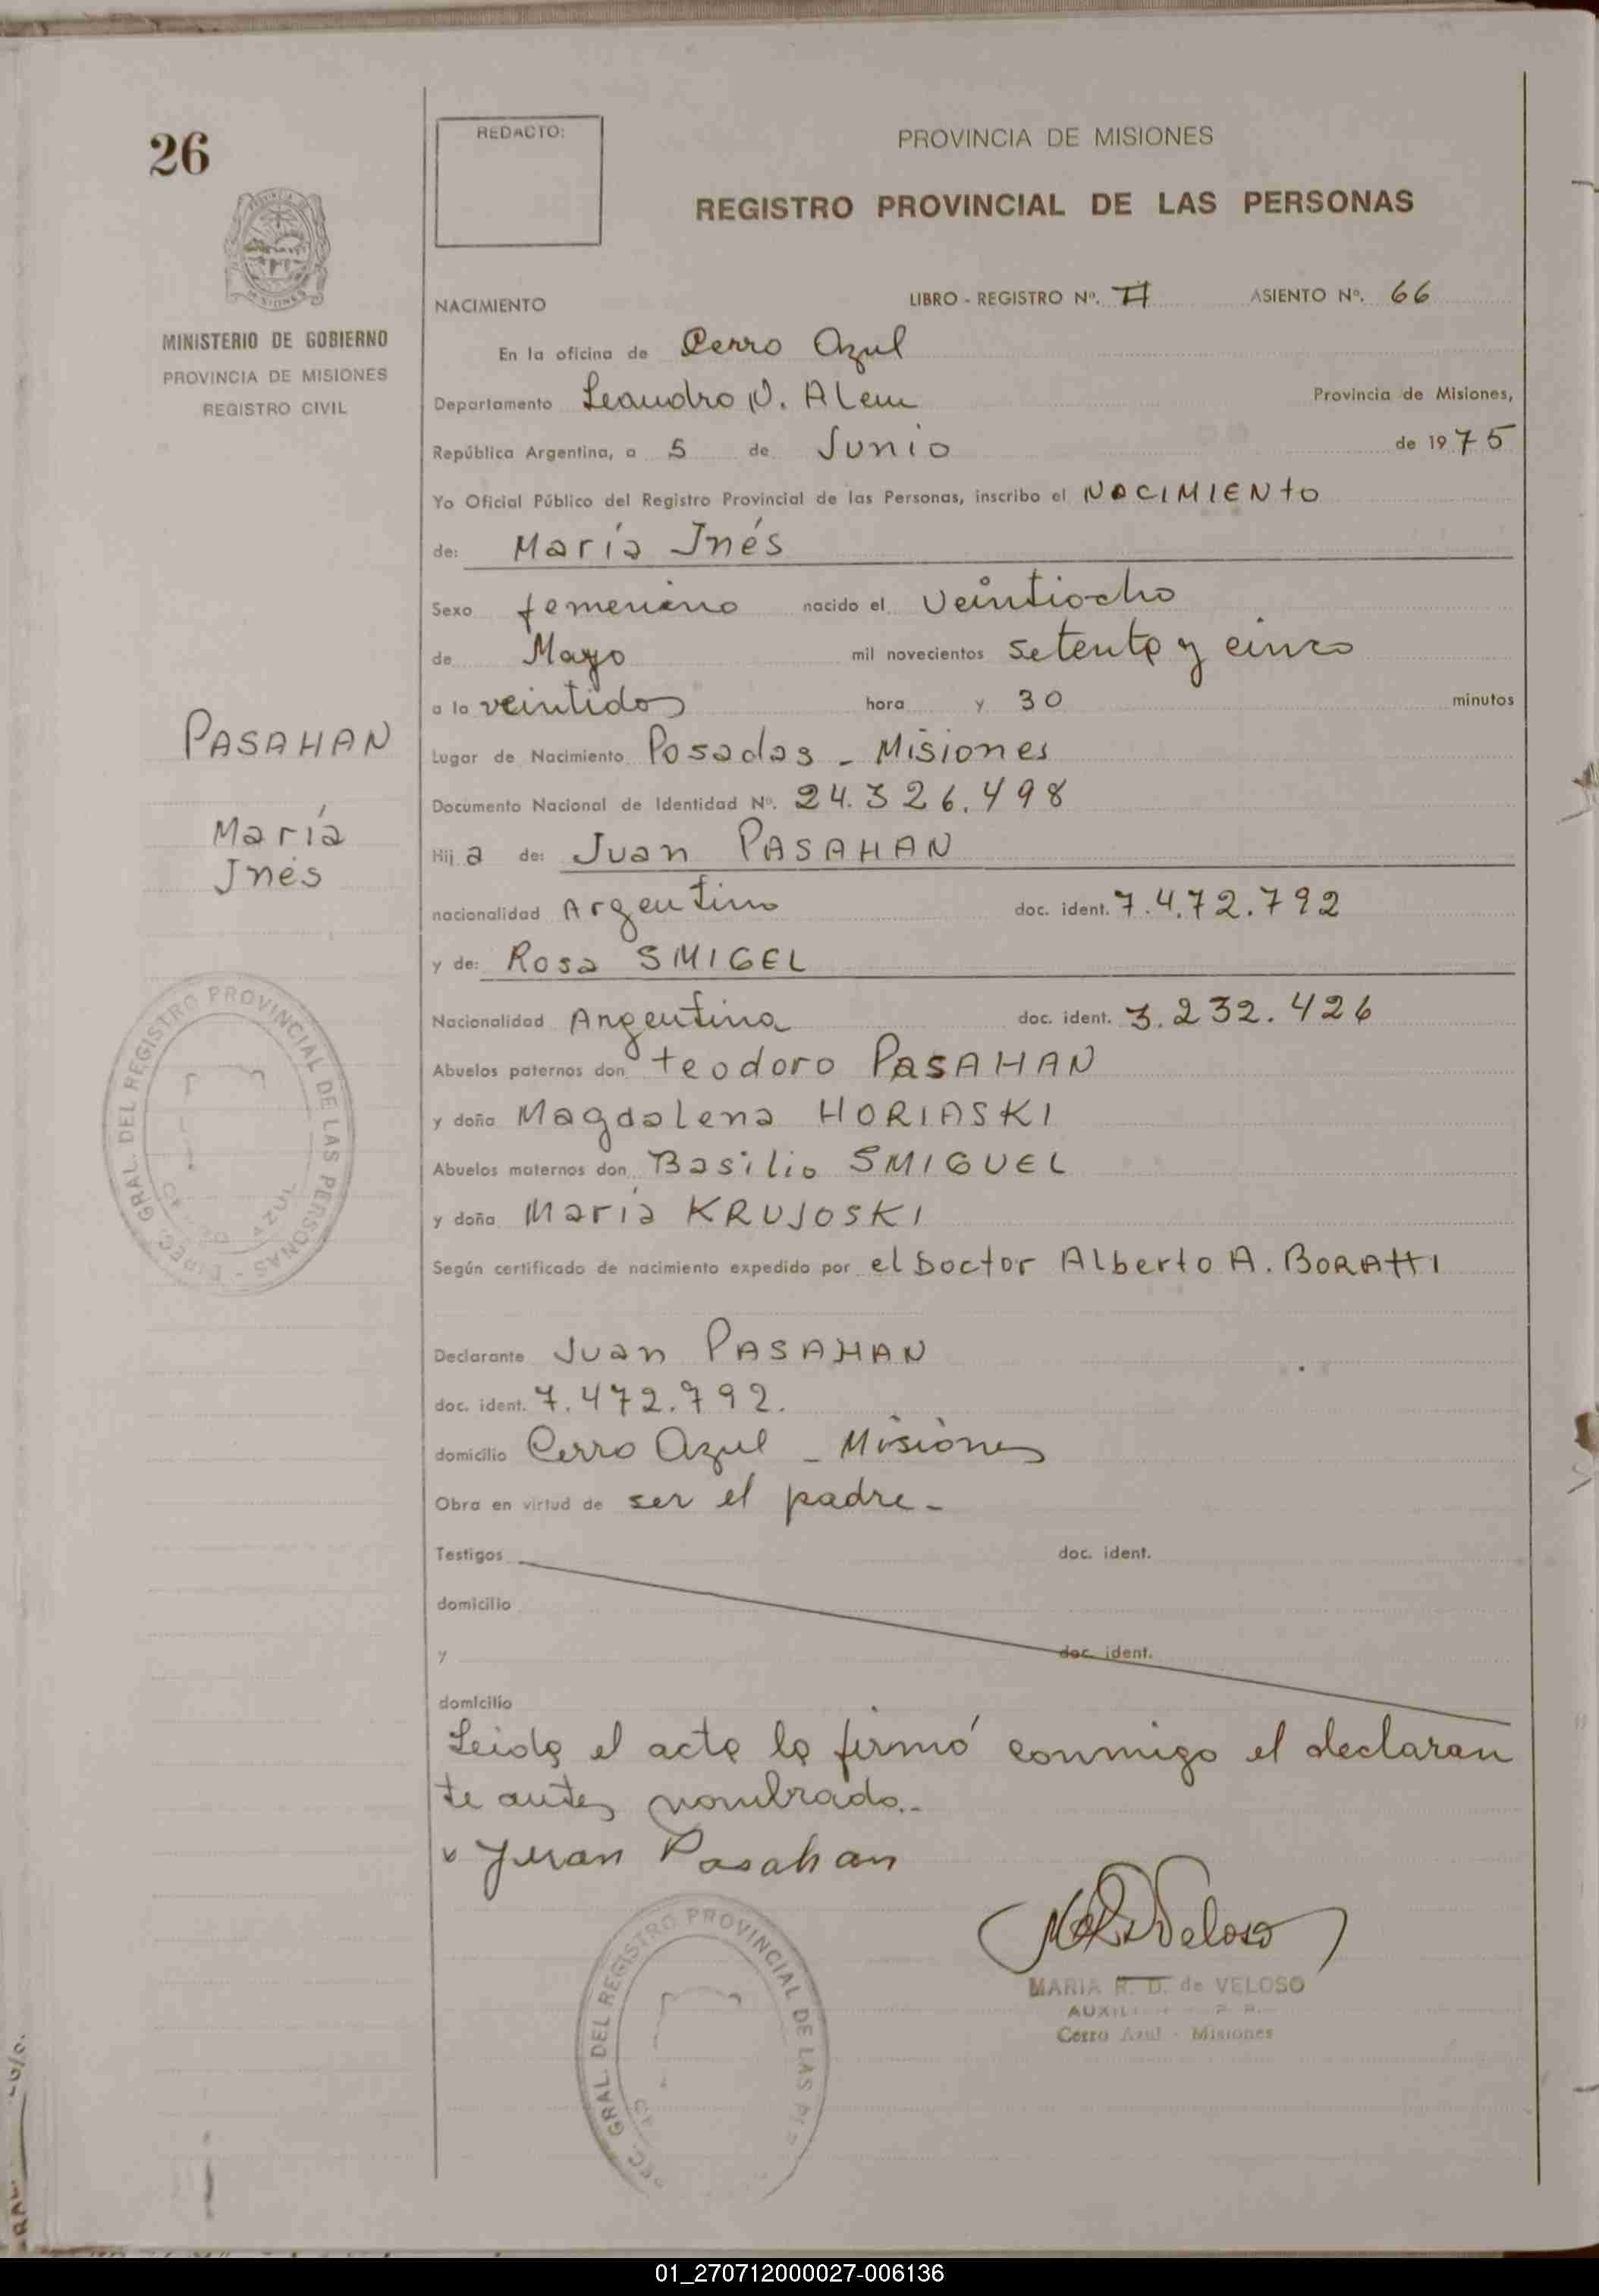 26
REDACTO:
PROVINCIA DE MISIONES
REGISTRO PROVINCIAL DE LAS PERSONAS
MINISTERIO DE GOBIERNO
PROVINCIA DE MISIONES
REGISTRO CIVIL
NACIMIENTO LIBRO - REGISTRO Nº. II ASIENTO Nº. 66
En la oficina de Cerro Azul
Departamento Leandro N. Alem Provincia de Misiones,
República Argentina, a 5 de Junio de 1975
Yo Oficial Público del Registro Provincial de las Personas, inscribo el NACIMIENTO
de: María Inés
Sexo femenino nacido el veintiocho
de Mayo mil novecientos setenta y cinco
a la veintidos hora y 30 minutos
PASAHAN
María
Inés
Lugar de Nacimiento Posadas - Misiones
Documento Nacional de Identidad Nº. 24.326.498
Hij a de: Juan PASAHAN
nacionalidad Argentino doc. ident. 7.4.72.792
y de: Rosa SMIGEL
Nacionalidad Argentina doc. ident. 3.232.426
Abuelos paternos don teodoro PASAHAN
y doña Magdalena HORIASKI
Abuelos maternos don Basilio SMIGUEL
y doña María KRUJOSKI
Según certificado de nacimiento expedido por el Doctor Alberto A. BORATTI
Declarante Juan PASAHAN
doc. ident. 7.472.792.
domicilio Cerro Azul - Misiones
Obra en virtud de ser el padre.-
Testigos doc. ident.
domicilio
y doc. ident.
domicilio
Leida el acta la firmó conmigo el declaran
te antes nombrado.-
Juan Pasahan
Veloso
MARIA R. D. de VELOSO
Cerro Azul - Misiones
GRAL. DEL REGISTRO PROVINCIAL DE LAS PERSONAS - DIREC.
AZUL
GRAL. DEL REGISTRO PROVINCIAL DE LAS
01_270712000027-006136